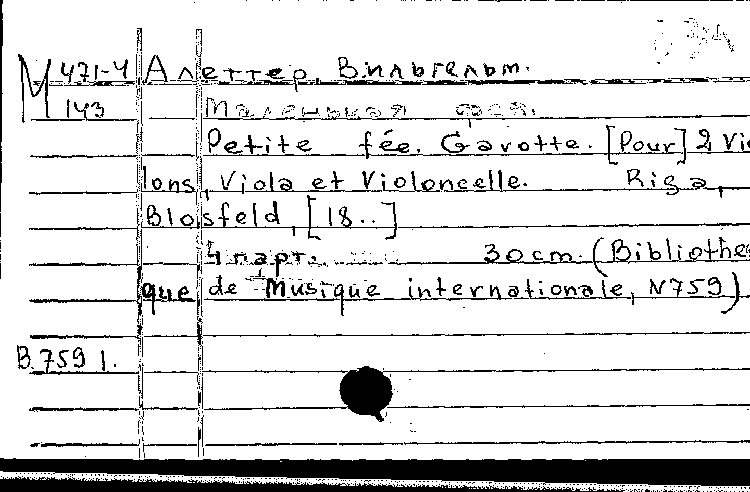 М 471-4 Алеттер, Вильгельм.
143 Маленькая фея.
Petite fée. Gavotte. [Pour] 2 Vio
lons, Viola et Violoncelle. Riga,
Blosfeld, [18..]
4 парт. 30 cm. (Bibliothe
que de Musique internationale, N759)
B.759 1.